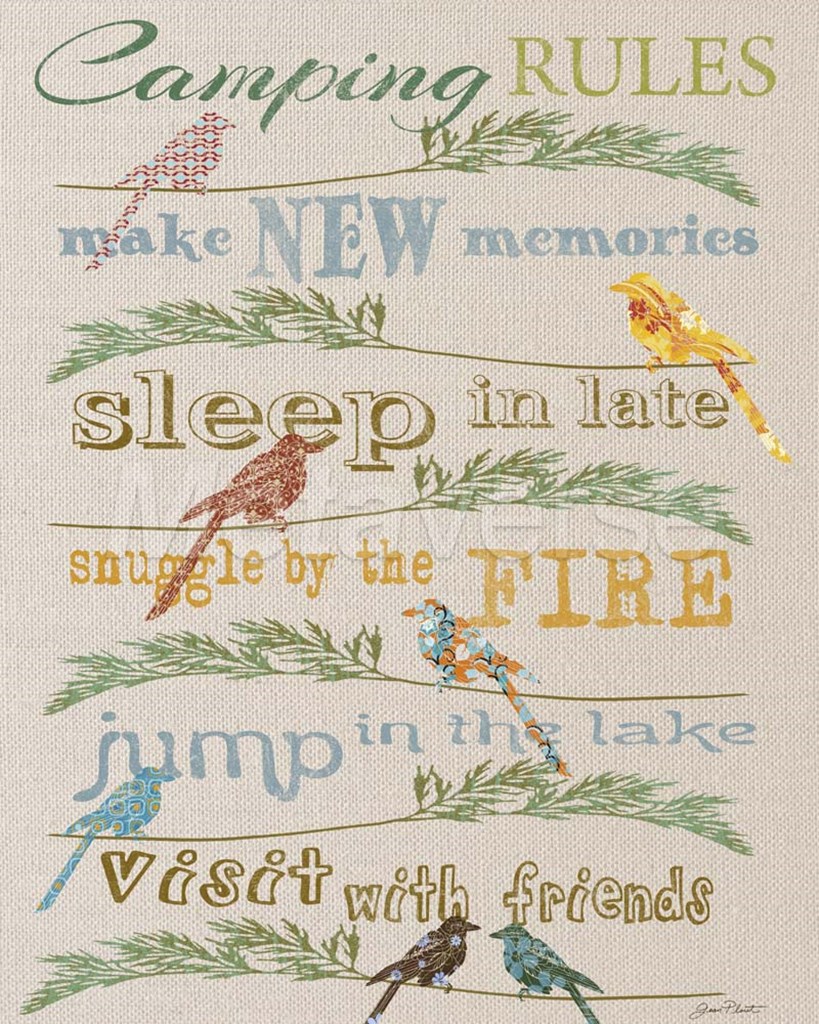 Camping RULES
make NEW memories
sleep in late
Metaverse
snuggle by the FIRE
jump in the lake
visit with friends